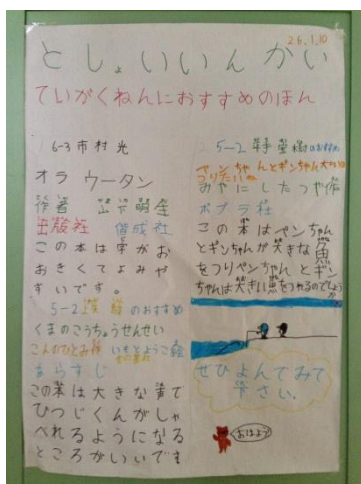 26.1.10
としょいいんかい
ていがくねんにおすすめのほん
6-3 市村 光
オラウータン
作者
出版社 偕成社
この本は字がお
おきくてよみや
すいです。
5-2 のおすすめ
くまのこうちょうせんせい
こんのひとみ作 いもとようこ絵
あらすじ
この本は大きな声で
ひつじくんがしゃ
べれるようになる
ところがいいです
5-2 のおすすめ
ペンちゃんとギンちゃん
つりたいね
みやにしたつや作
ポプラ社
この本はペンちゃん
とギンちゃんが大きな魚
をつりペンちゃんとギン
ちゃんは大きい魚をつれるのでしょうか
ぜひよんでみて
下さい。
おはよう!